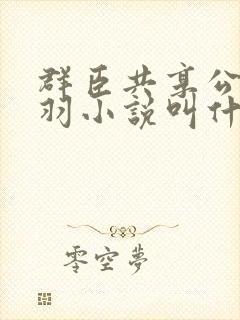 群臣共享公
羽小說叫什
零空夢